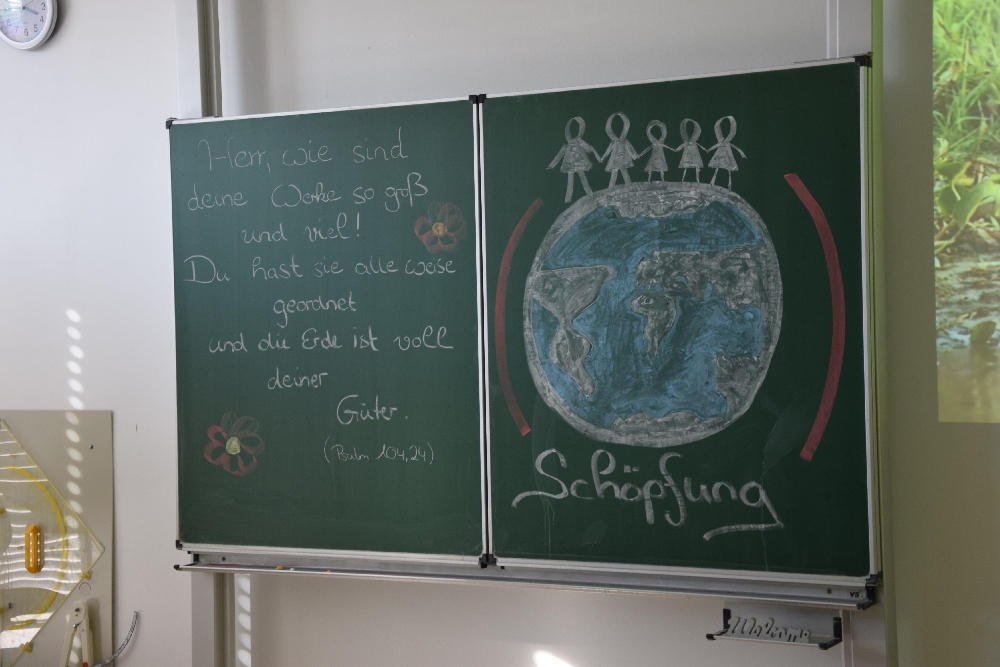 Herr, wie sind
deine Werke so groß
und viel!
Du hast sie alle weise
geordnet
und die Erde ist voll
deiner
Güter.
(Psalm 104,24)
Schöpfung